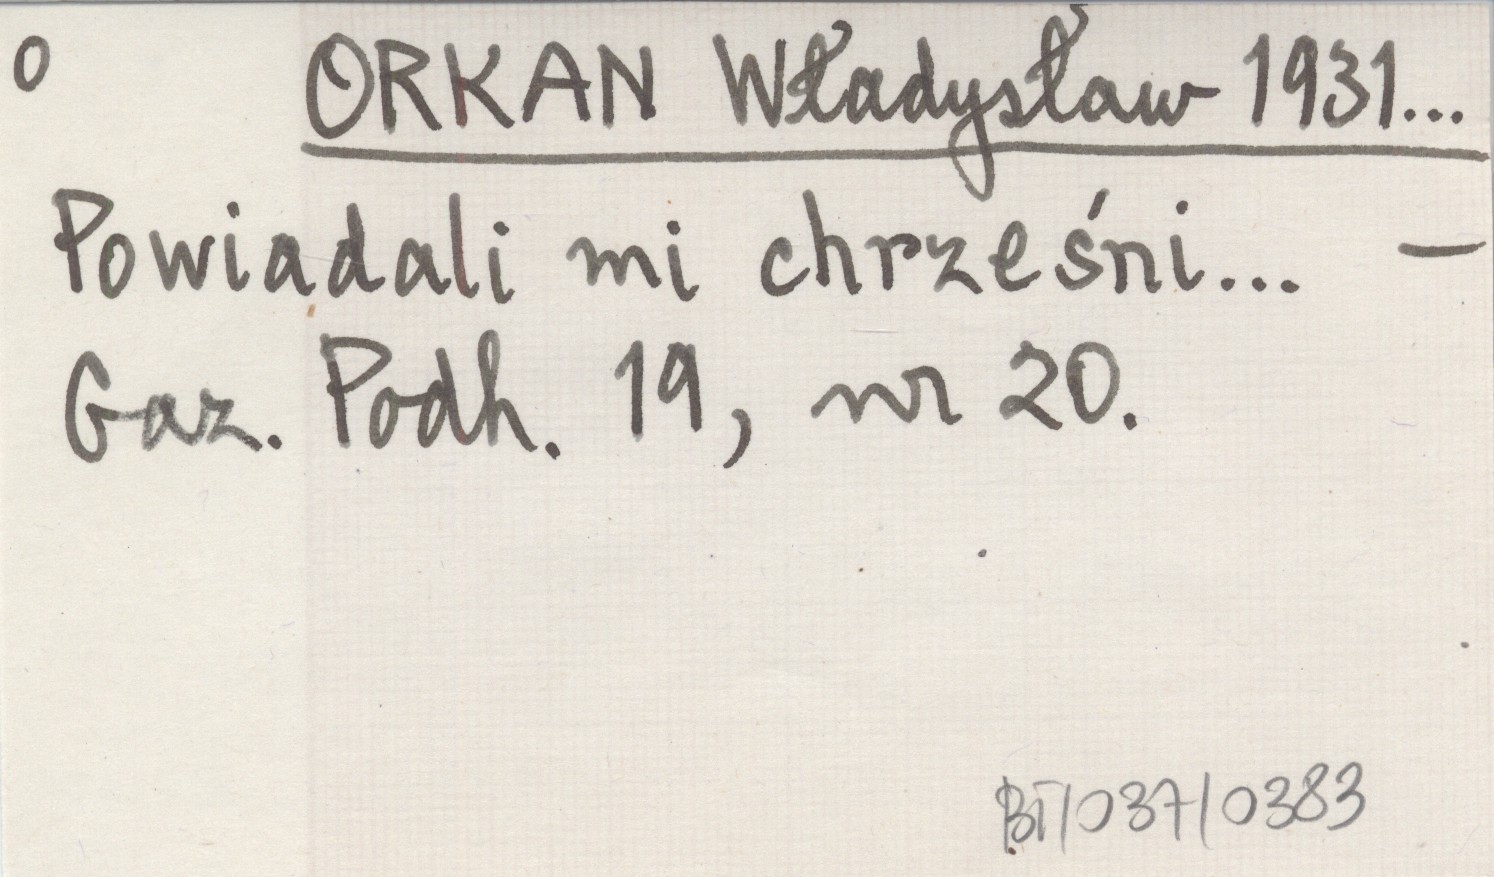 o ORKAN Władysław 1931...
Powiadali mi chrześni... —
Gaz. Podh. 19, nr 20.
BT/037/0383